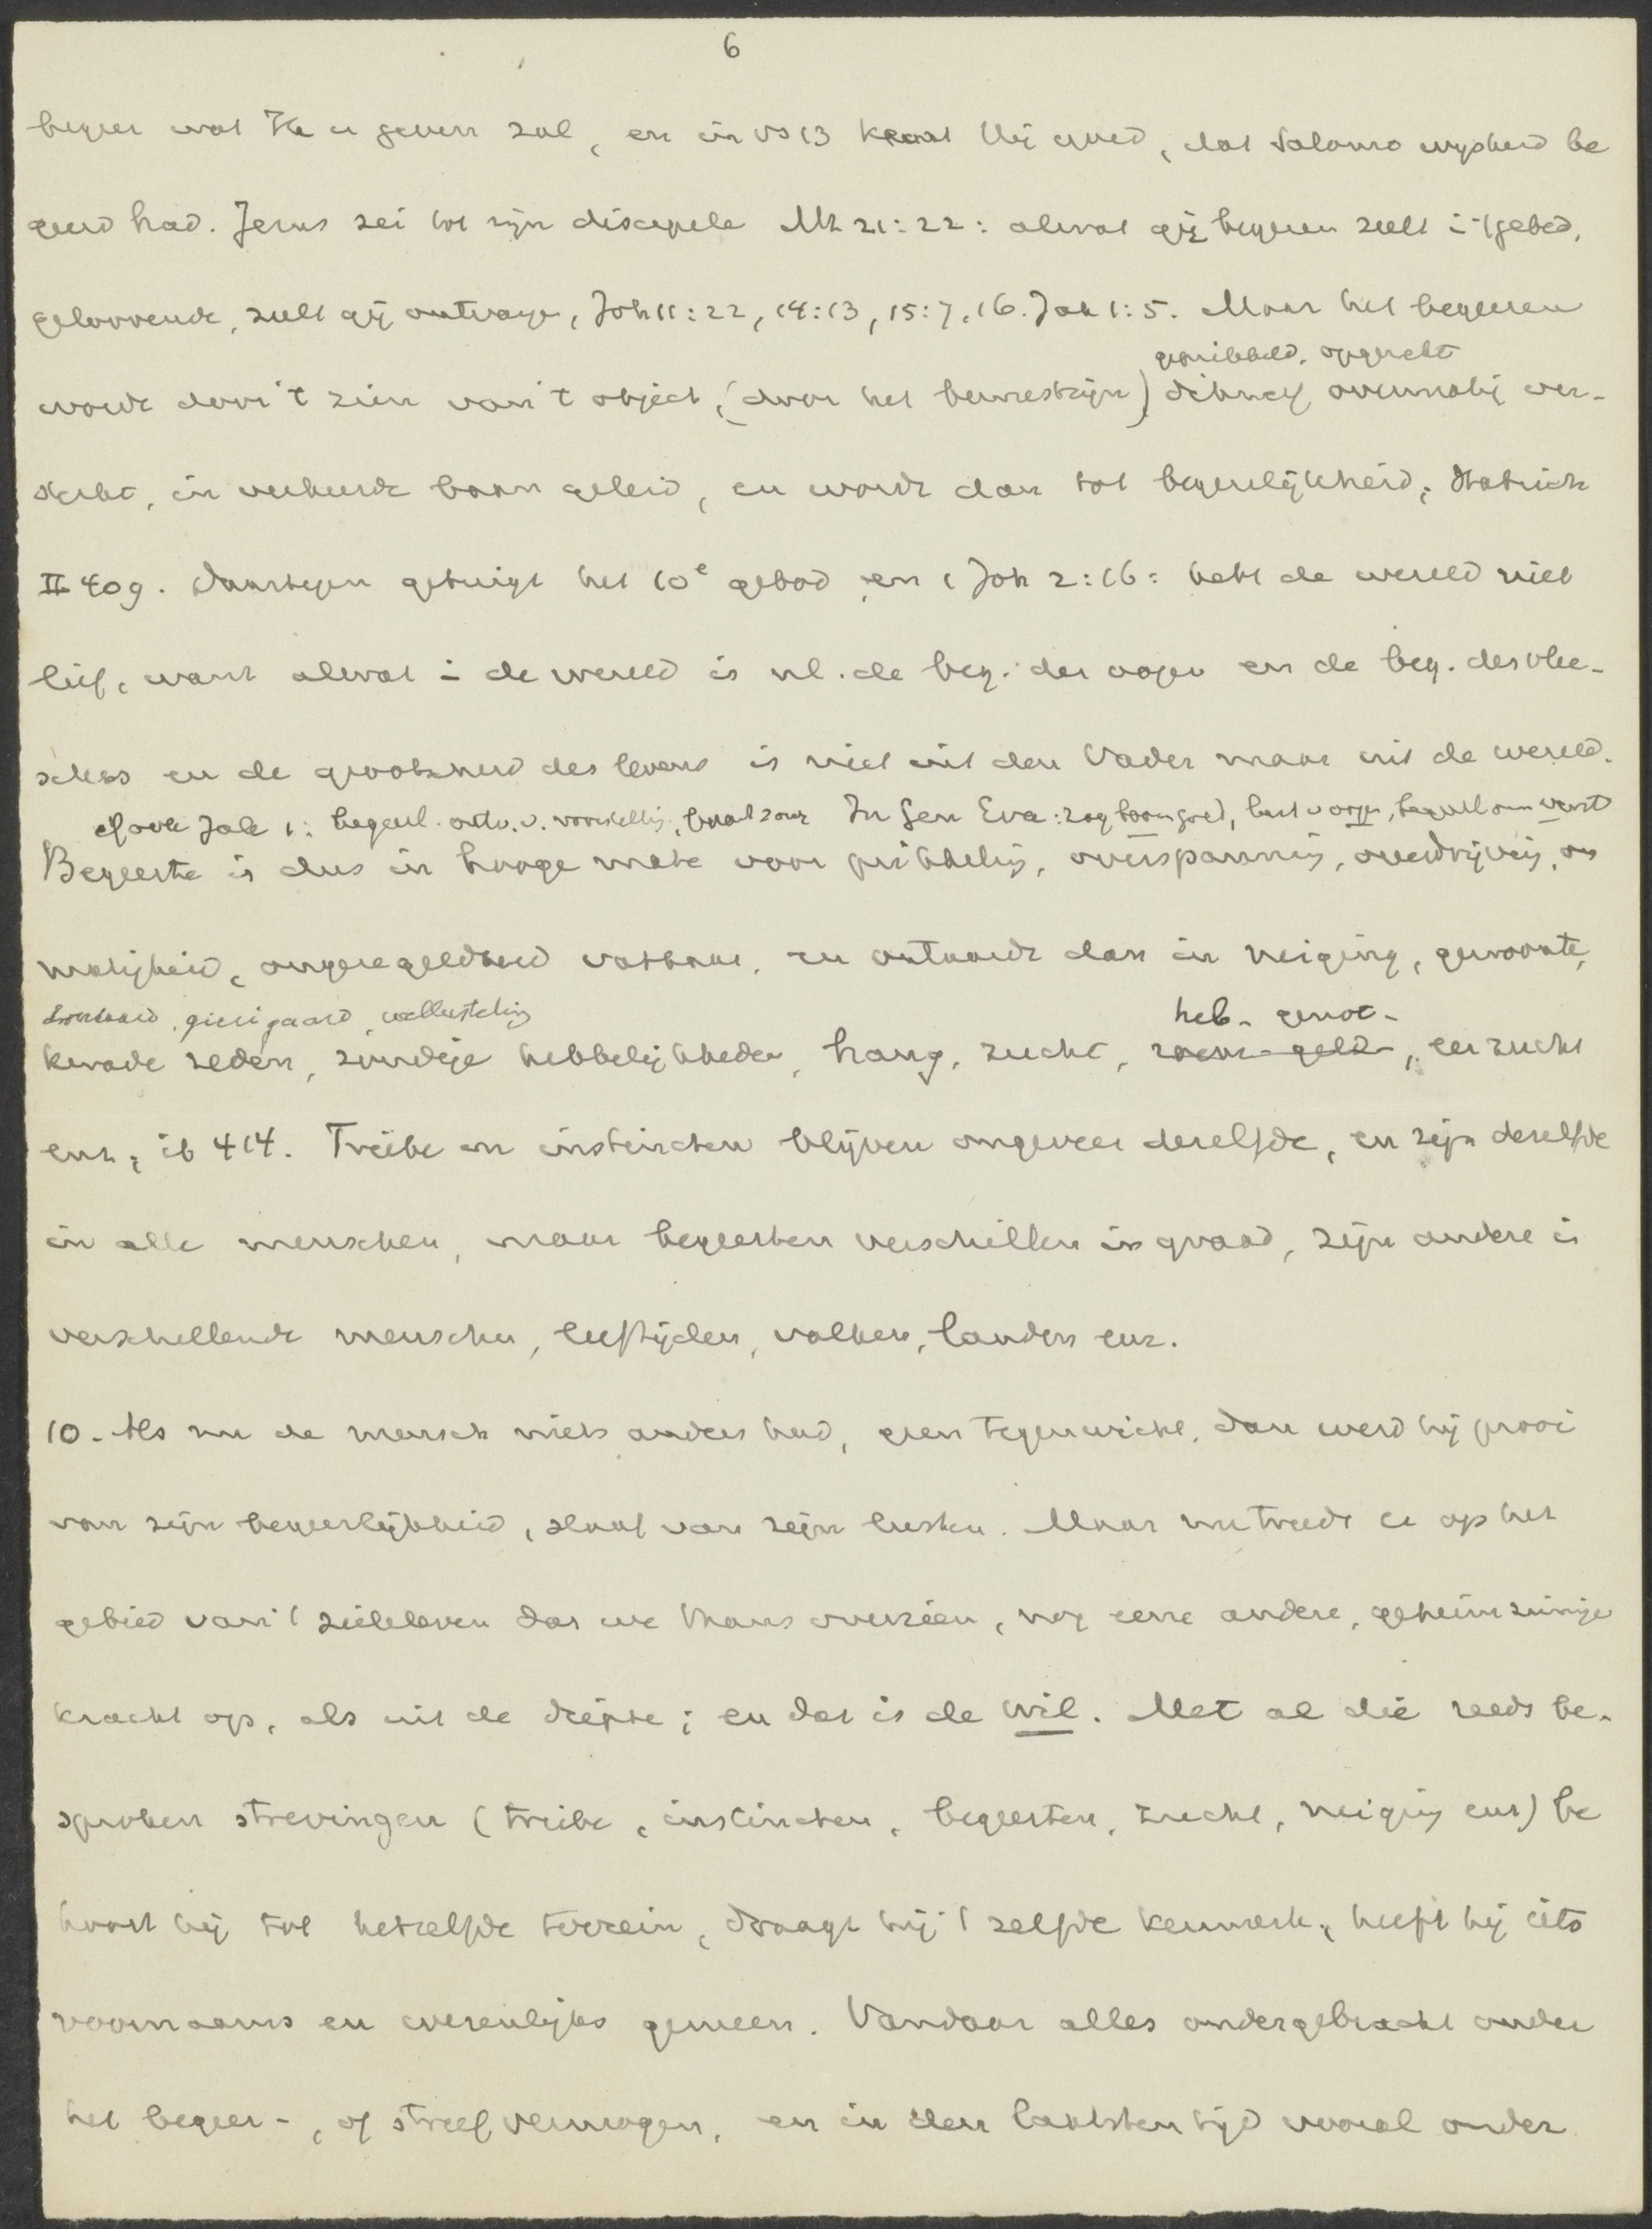 6
begeer wat Ik u geven zal, en in vs 13 keurt Hij goed, dat Salomo wijsheid be
geerd had. Jezus zei tot zijn discipele Mt 21:22: alwat gij begeeren zult i 't gebed,
geloovende, zult gij ontvange, Joh 11:22, 14:13, 15:7, 16. Jak 1:5. Maar het begeeren
geprikkeld, opgewekt
wordt door 't zien van 't object, (door het bewustzijn) dikwijls overmatig ver-
sterkt, in verkeerde baan geleid, en wordt dan tot begeerlijkheid;
II 409. Daartegen getuigt het 10e gebod en 1 Joh 2:16: hebt de wereld niet
lief, want alwat i de wereld is nl. de beg. der oogen en de beg. des vlee-
sches en de grootschheid des levens is niet uit den Vader maar uit de wereld.
cf ook Jak 1: begeerl. ontv. v. voorstellig, baart zonde In Gen Eva: zag boom goed, lust v oogen, begeerl om verst
Begeerte is dus in hooge mate voor prikkeling, overspanning, overdrijving, on
matigheid, ongeregeldheid vatbaar, en ontaardt dan in neiging, gewoonte,
dronkaard, gierigaard, wellusteling
kwade zeden, zondige hebbelijkheden, hang, zucht,
heb- genot-
, eerzucht
enz; ib 414. Triebe en instincten blijven ongeveer dezelfde, en zijn dezelfde
in alle menschen, maar begeerten verschillen in graad, zijn andere i
verschillende menschen, leeftijden, volken, landen enz.
10. Als nu de mensch niets anders had, geen tegenwicht, dan werd hij prooi
van zijn begeerlijkheid, slaaf van zijn lusten. Maar nu treedt er op het
gebied van 't zieleleven dat we thans overzien, nog eene andere, geheimzinnige
kracht op, als uit de diepte; en dat is de wil. Met al die reeds be-
sproken strevingen (triebe, instincten, begeerten, zucht, neiging enz) be
hoort hij tot hetzelfde terrein, draagt hij 't zelfde kenmerk, heeft hij iets
voornaams en wezenlijks gemeen. Vandaar alles ondergebracht onder
het begeer-, of streefvermogen, en in den laatsten tijd vooral onder